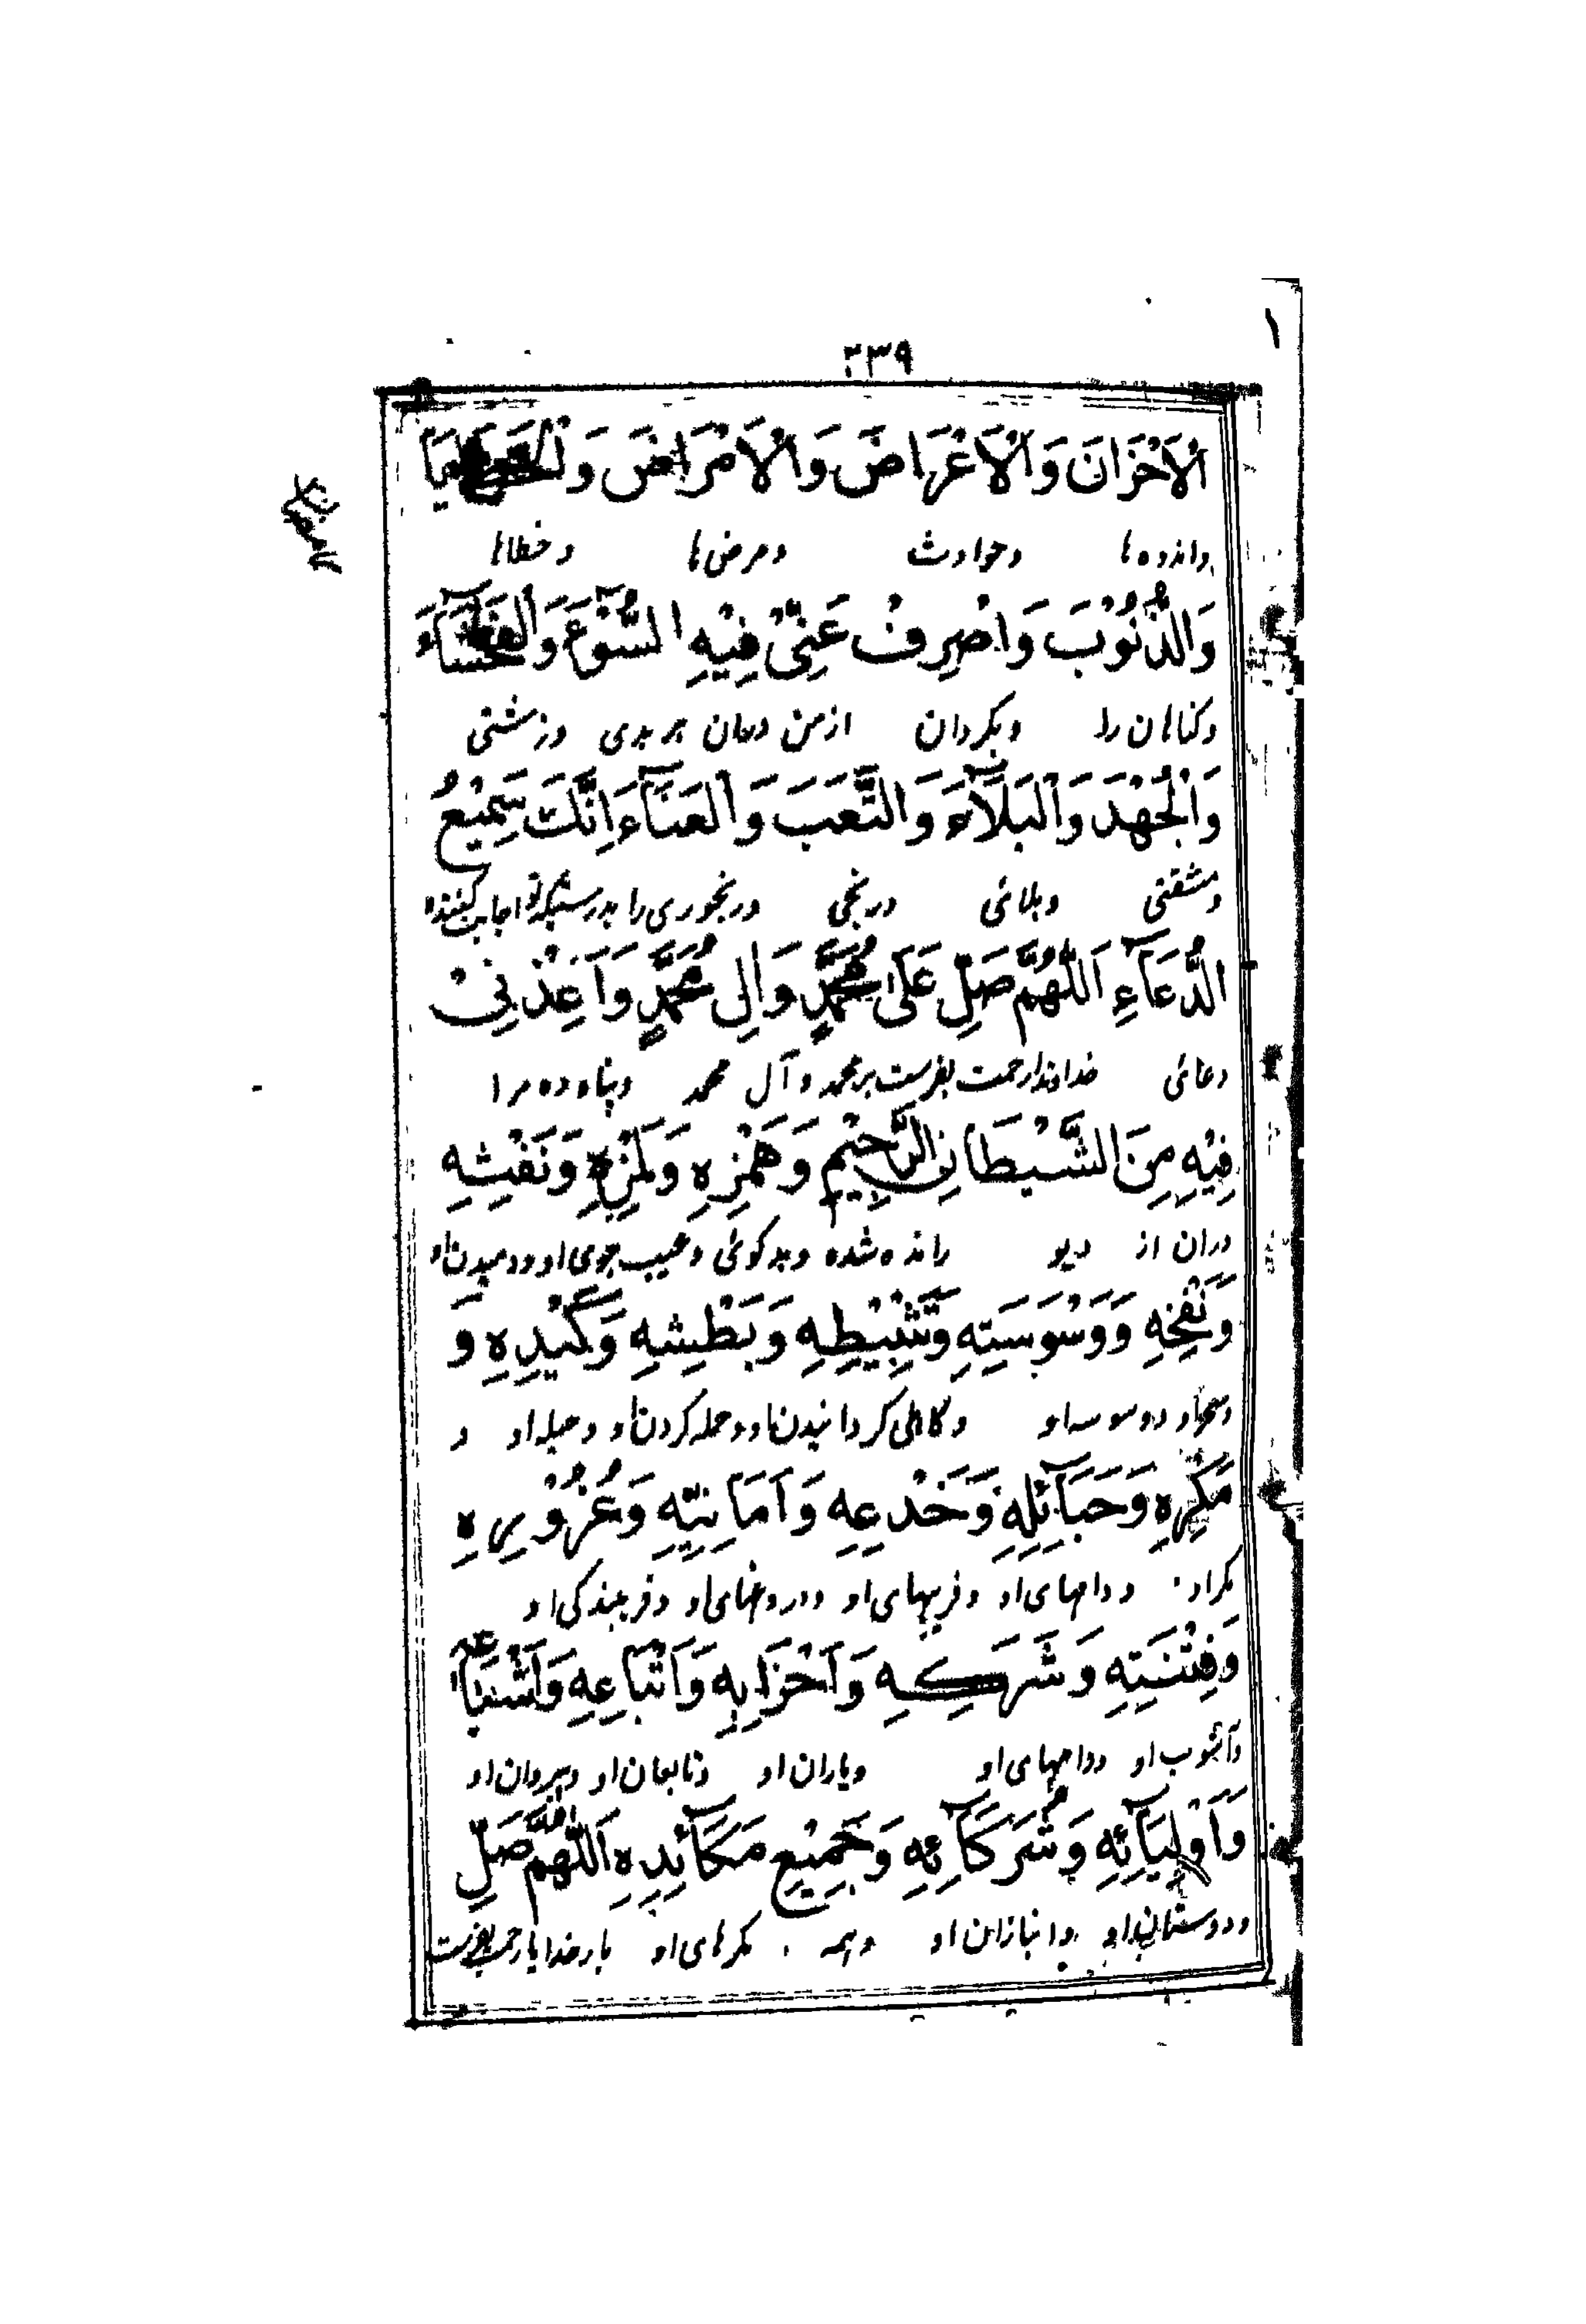 ٣٣٩
اَلْاَحْزَانَ وَالْاَعْرَاضَ وَالْاَمْرَاضَ وَالْخَطَايَا
واندوه‌ها وحوادث ومرض‌ها وخطاها
وَالذُّنُوْبَ وَاصْرِفْ عَنِّىْ فِيْهِ السُّوْٓءَ وَالْفَحْشَآءَ
وکناهان را وبکردان ازمن دران هر بدی وزشتی
وَالْجَهْدَ وَالْبَلَآءَ وَالتَّعَبَ وَالْعَنَآءَ اِنَّكَ سَمِيْعُ
ومشقتی وبلائی ورنجی ورنجوری را بدرستیکه تو اجابت کننده
الدُّعَآءِ اَللّٰهُمَّ صَلِّ عَلٰى مُحَمَّدٍ وَاٰلِ مُحَمَّدٍ وَاَعِذْنِىْ
دعائی خداوندا رحمت بفرست بر محمد و آل محمد وپناه ده مرا
فِيْهِ مِنَ الشَّيْطَانِ الرَّجِيْمِ وَهَمْزِهٖ وَلَمْزِهٖ وَنَفْثِهٖ
دران از دیو رانده شده وبدکوئی وعیب جوی او ودمیدن او
وَنَفْخِهٖ وَوَسْوَسَتِهٖ وَتَثْبِيْطِهٖ وَبَطْشِهٖ وَكَيْدِهٖ وَ
ووسوسه او وکاهلی کردانیدن او وحمله کردن او وحیله او و
مَكْرِهٖ وَحَبَآئِلِهٖ وَخَدْعِهٖ وَاَمَانِيِّهٖ وَغُرُوْرِهٖ
مکر او ودامهای او وفریبهای او ودروغهای او وفریبندکی او
وَفِتْنَتِهٖ وَشَرَكِهٖ وَاَحْزَابِهٖ وَاَتْبَاعِهٖ وَاَشْيَاعِهٖ
وآشوب او ودامهای او ویاران او وتابعان او وپیروان او
وَاَوْلِيَآئِهٖ وَشُرَكَآئِهٖ وَجَمِيْعِ مَكَآئِدِهٖ اَللّٰهُمَّ صَلِّ
ودوستان او وانبازان او وهمه مکرهای او بار خدایا رحمت بفرست